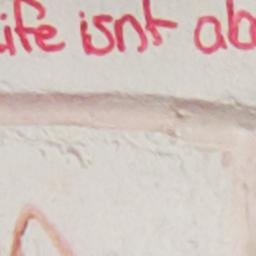 ife isnt ab